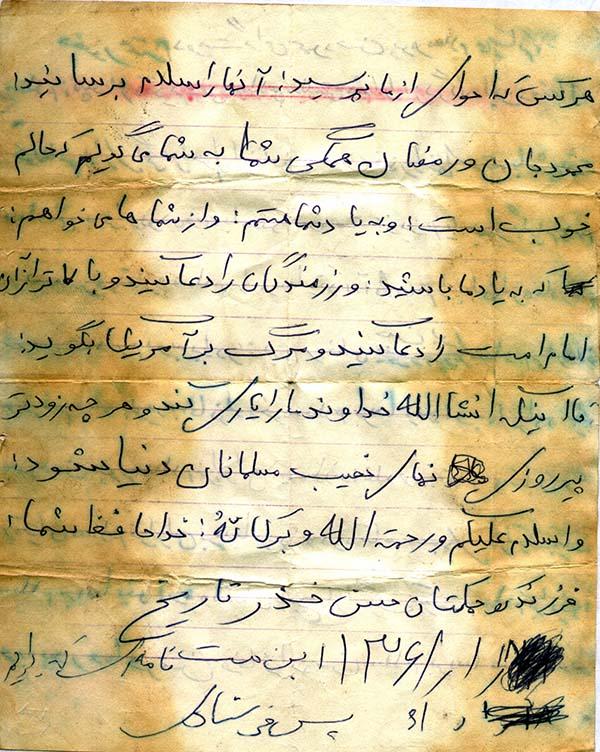 هر کس که احوالی از ما پرسید؛ آنها را سلام برسانید؛
محمود جان و رمضان همگی شما به شما می گویم که حالم
خوب است؛ و به یاد شما هستم؛ و از شما ها می خواهم؛
که به یاد ما باشید؛ و رزمندگان را دعا کنید و بالاتر از آن
امام امت را دعا کنید و مرگ بر آمریکا بگوید؛
تا اینکه انشاالله خداوند ما را یاری کند و هر چه زودتر
پیروزی نهای نصیب مسلمانان دنیا شود؛
واسلام علیکم و رحمت الله و برکاتهُ؛ خداحافظ شما؛
فرزند کوچکتان حسن تاریخ
۱۳۶۱ این نامه
پس